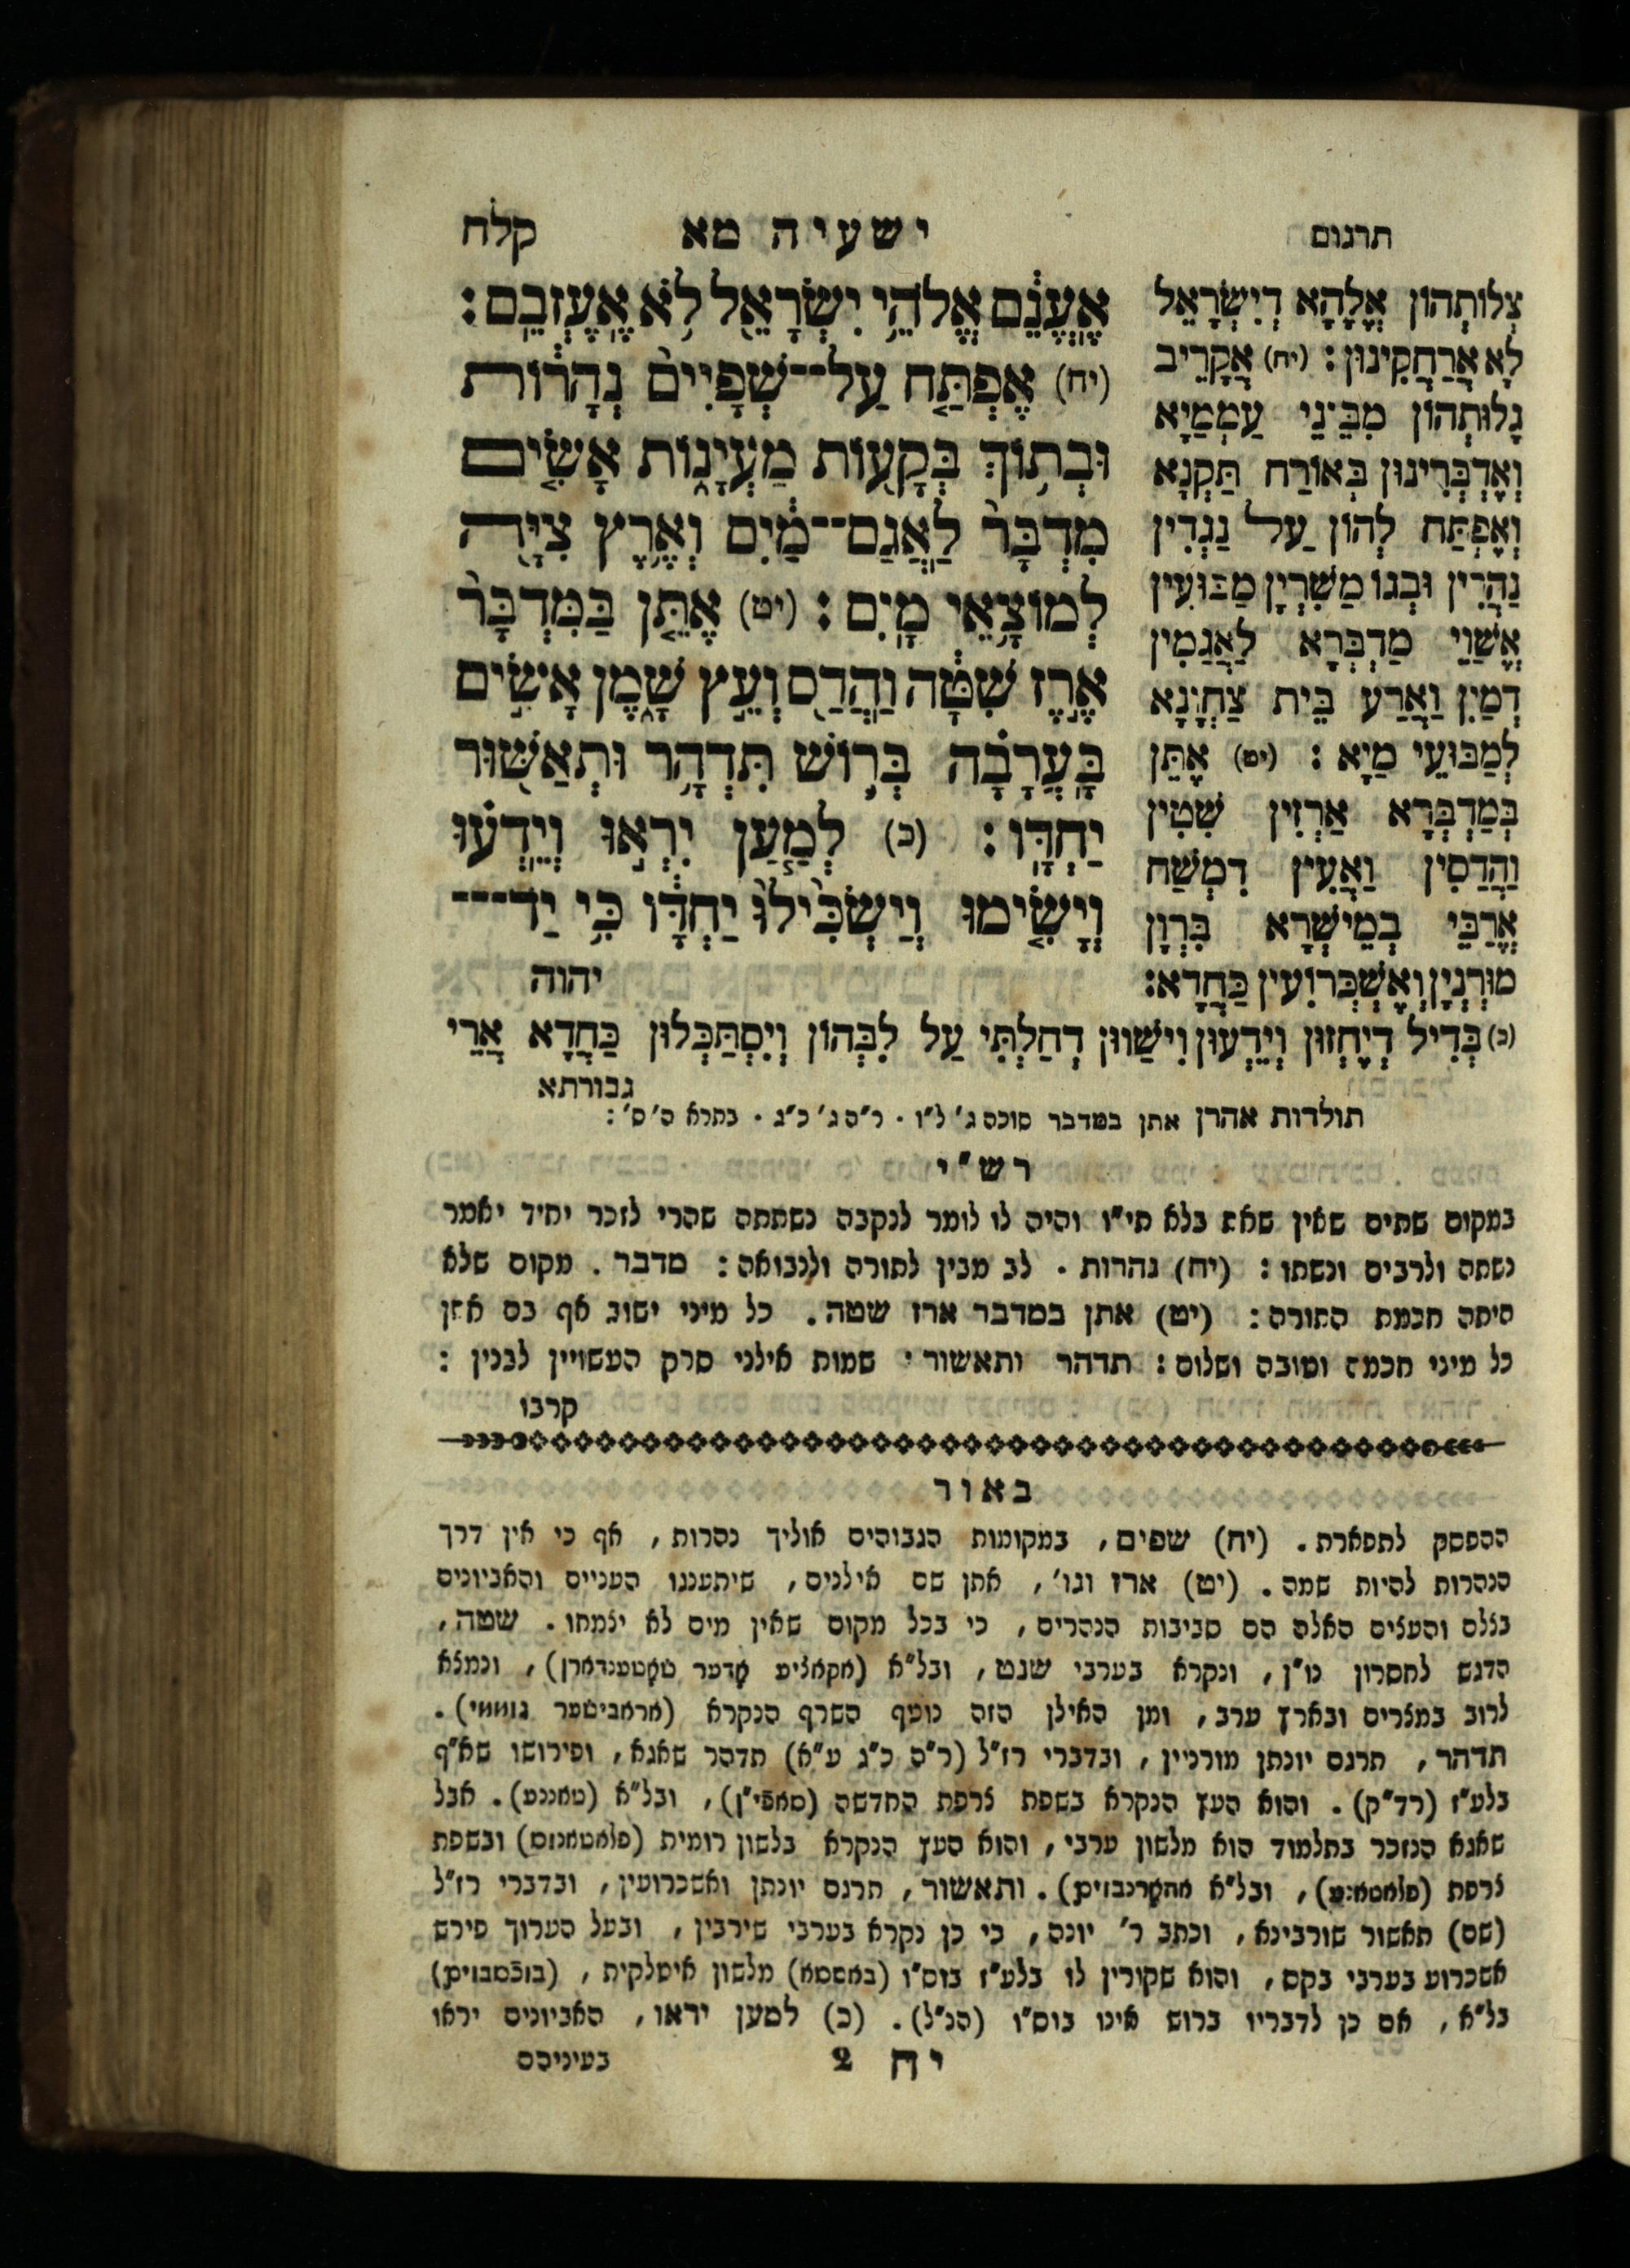 תרגום
ישעיה מא
קלח
אֶֽעֱנֵ֔ם אֱלֹהֵ֥י יִשְׂרָאֵ֖ל לֹ֥א אֶֽעֶזְבֵֽם׃
(יח) אֶפְתַּ֤ח עַל־־שְׁפָיִים֙ נְהָר֔וֹת
וּבְת֥וֹךְ בְּקָע֖וֹת מַעְיָנ֑וֹת אָשִׂ֤ים
מִדְבָּר֙ לַֽאֲגַם־־מַ֔יִם וְאֶ֥רֶץ צִיָּ֖ה
לְמוֹצָ֥אֵי מָֽיִם׃ (יט) אֶתֵּ֤ן בַּמִּדְבָּר֙
אֶ֣רֶז שִׁטָּ֔ה וַֽהֲדַ֖ס וְעֵ֣ץ שָׁ֑מֶן אָשִׂ֣ים
בָּֽעֲרָבָ֗ה בְּר֛וֹשׁ תִּדְהָ֥ר וּתְאַשּׁ֖וּר
יַחְדָּֽו׃ (כ) לְמַ֧עַן יִרְא֣וּ וְיֵֽדְע֗וּ
וְיָשִׂ֤ימוּ וְיַשְׂכִּ֙ילוּ֙ יַחְדָּ֔ו כִּ֥י יַד־־־
יהוה
צְלוֹתְהוֹן אֱלָהָא דְיִשְׂרָאֵל
לָא אֲרַחֲקִינוּן׃ (יח) אֲקָרֵיב
גָלוּתְהוֹן מִבֵּינֵי עַמְמַיָא
וְאֶדְבְּרִינוּן בְּאוֹרַח תַּקְנָא
וְאֶפְתַּח לְהוֹן עַל נַגְדִין
נַהֲרִין וּבְגוֹ מֵשְׁרִין מַבּוּעִין
אֱשַׁוֵי מַדְבְּרָא לַאֲגַמִין
דְמַיִן וַאֲרַע בֵּית צַחְיָנָא
לְמַבּוּעֵי מַיָא׃ (יט) אֶתֵּן
בְּמַדְבְּרָא אַרְזִין שִׁטִין
וַהֲדַסִין וַאֲעִין דִמְשַׁח
אֱרַבֵּי בְמֵישְׁרָא בִּרְוָן
מוּרְנְיָן וְאֶשְׁכְּרוֹעִין כַּחֲדָא׃
(כ) בְּדִיל דְיֶחְזוּן וְיֵדְעוּן וִישַׁווּן דְחַלְתִּי עַל לִבְּהוֹן וְיִסְתַּכְּלוּן כַּחֲדָא אֲרֵי
גבורתא
תולדות אהרן אתן במדבר סוכה ג׳ ל״ז · ר״ה ג׳ כ״ג · בתרא ה׳ ס׳ :
רש״י
במקום שתים שאין שאת בלא תי״ו והיה לו לומר לנקבה נשתתה שהרי לזכר יחיד יאמר
נשתה ולרבים ונשתו : (יח) נהרות · לב מבין לתורה ולנבואה : מדבר . מקום שלא
היתה חכמת התורה : (יט) אתן במדבר ארז שטה . כל מיני ישוב אף בם אתן
כל מיני חכמה וטובה ושלום : תדהר ותאשור · שמות אילני סרק העשויין לבנין :
קרבו
באור
ההפסק לתפארת . (יח) שפים , במקומות הגבוהים אוליך נהרות , אף כי אין דרך
הנהרות להיות שמה . (יט) ארז וגו׳ , אתן שם אילנים , שיתענגו העניים והאביונים
בצלם והעצים האלה הם סביבות הנהרים , כי בכל מקום שאין מים לא יצמחו . שטה ,
הדגש לחסרון נו״ן , ונקרא בערבי שנט , ובל״א (אקאציע אָדער שאָטענדארן) , ונמצא
לרוב במצרים ובארץ ערב , ומן האילן הזה נוטף השרף הנקרא (אראבישער גוממי) .
תדהר , תרגם יונתן מורניין , ובדברי רז״ל (ר״ה כ״ג ע״א) תדהר שאגא , ופירושו שא״ף
בלע״ז (רד״ק) . והוא העץ הנקרא בשפת צרפת החדשה (סאפי״ן) , ובל״א (טאננע) . אבל
שאגא הנזכר בתלמוד הוא מלשון ערבי , והוא העץ הנקרא בלשון רומית (פלאטאנוס) ובשפת
צרפת (פלאטאנע) , ובל״א אהאָרנבוים) . ותאשור , תרגם יונתן ואשכרועין , ובדברי רז״ל
(שם) תאשור שורבינא , וכתב ר׳ יונה , כי כן נקרא בערבי שירבין , ובעל הערוך פירש
אשכרוע בערבי בקס , והוא שקורין לו בלע״ז בוס״ו (באססא) מלשון איטלקית , (בוכסבוים)
בל״א , אם כן לדבריו ברוש אינו בוס״ו (הנ״ל) . (כ) למען יראו , האביונים יראו
יח 2
בעיניהם